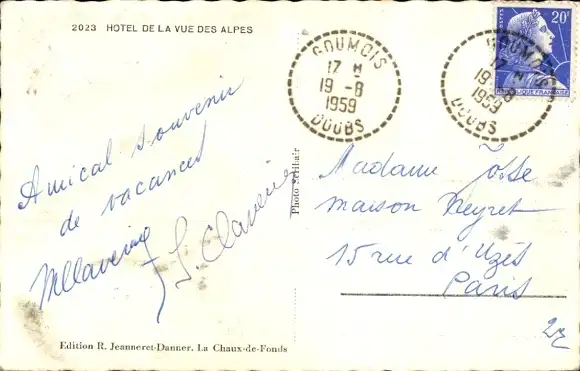 2023 HOTEL DE LA VUE DES ALPES
GOUMOIS
17 H
19 -8
1959
DOUBS
GOUMOIS
17 H
19 -8
1959
DOUBS
POSTES
20F
REPUBLIQUE FRANÇAISE
Amical souvenir
de vacances
S. Claverie
Photo Schitair
Madame
maison Meyret
15 rue d'Uzès
Paris
Edition R. Jeanneret-Danner. La Chaux-de-Fonds